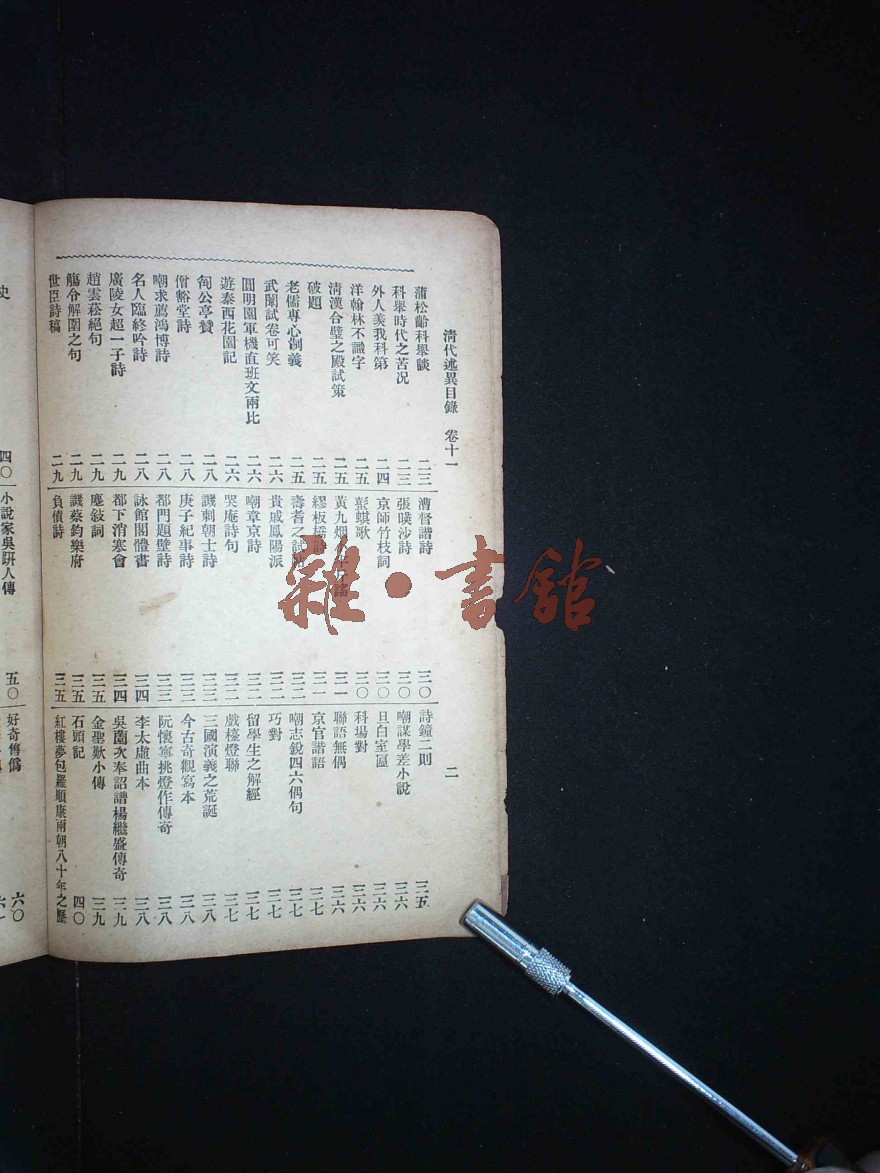 淸代述異目錄 卷十一 二
蒲松齡科舉談 二三
科舉時代之苦况 二三
外人羨我科第 二四
洋翰林不識字 二五
淸漢合璧之殿試策 二五
破題 二五
老儒專心制義 二五
武闈試卷可笑 二六
圓明園軍機直班文兩比 二六
遊泰西花園記 二六
甸公亭贊 二八
僧豁堂詩 二八
嘲求薦鴻博詩 二八
名人臨終吟詩 二八
廣陵女超一子詩 二九
趙雲菘絕句 二九
觴令解圍之句 二九
世臣詩稿 二九
曹督諧詩 三〇
張暎沙詩 三〇
京師竹枝詞 三〇
彭蜞歌 三〇
黃九烟 謠 三一
繆板橋詩 三一
壽耆之試 三二
貴戚鳳陽派 三二
嘲章京詩 三二
哭庵詩句 三二
譏刺朝士詩 三三
庚子紀事詩 三三
都門題壁詩 三三
詠館閣體書 三四
都下消寒會 三四
塵敍詞 三五
譏蔡鈞樂府 三五
負債詩 三五
詩鐘二則 三五
嘲謀學差小說 三六
旦白室匾 三六
科場對 三六
聯語無偶 三六
京官諧語 三七
嘲志銳四六偶句 三七
巧對 三七
留學生之解經 三七
戲檯燈聯 三七
三國演義之荒誕 三八
今古奇觀寫本 三八
阮懷寧挑燈作傳奇 三八
李太虛曲本 三八
吳蘭次奉詔譜楊繼盛傳奇 三九
金聖歎小傳 三九
石頭記 四〇
紅樓夢包羅順康兩朝八十年之歷
史 四〇
小說家吳趼人傳 五〇
好奇售僞 六〇
雜·書館